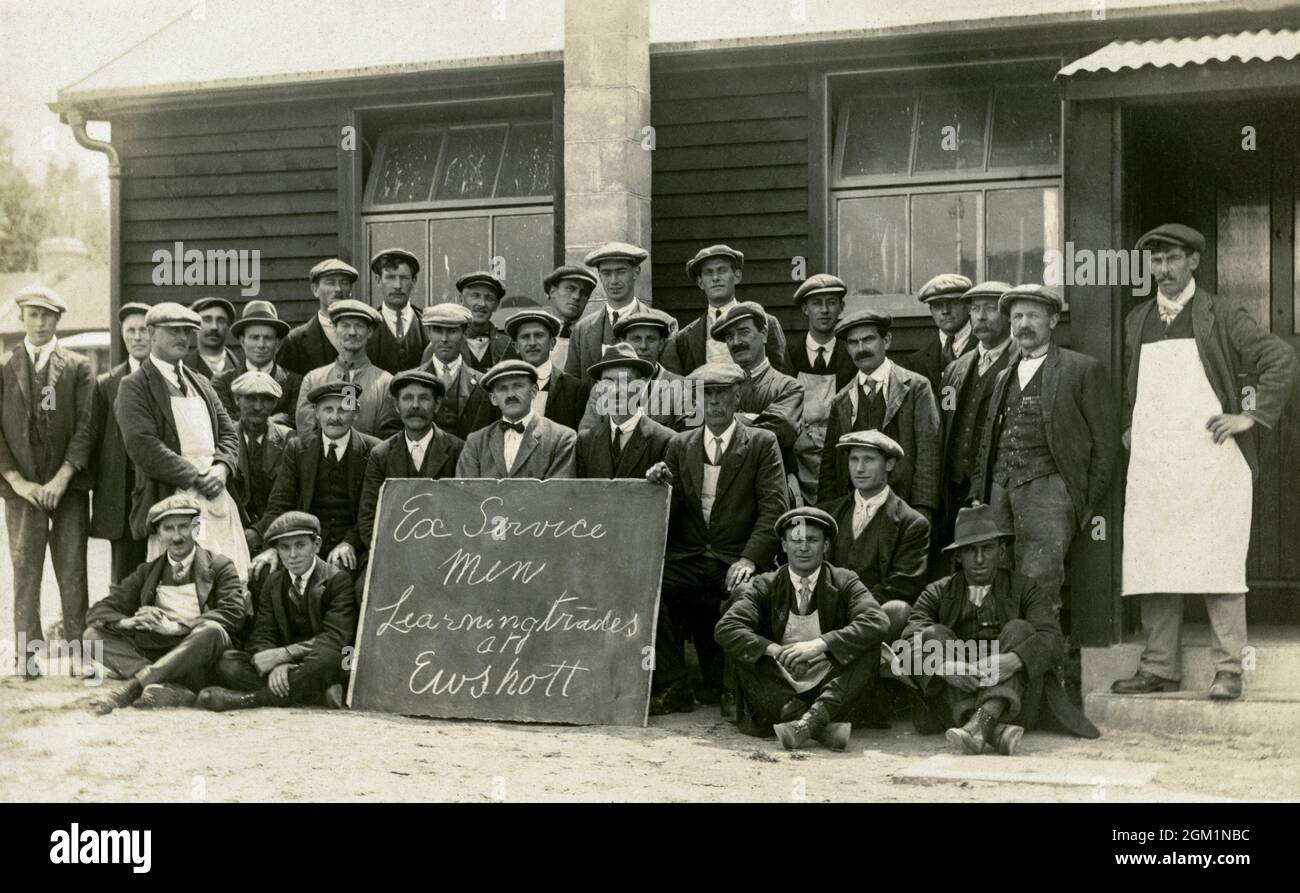 Ex Service
Men
Learning trades
at
Ewshott
alamy
Image ID: 2GM1NBC
www.alamy.com